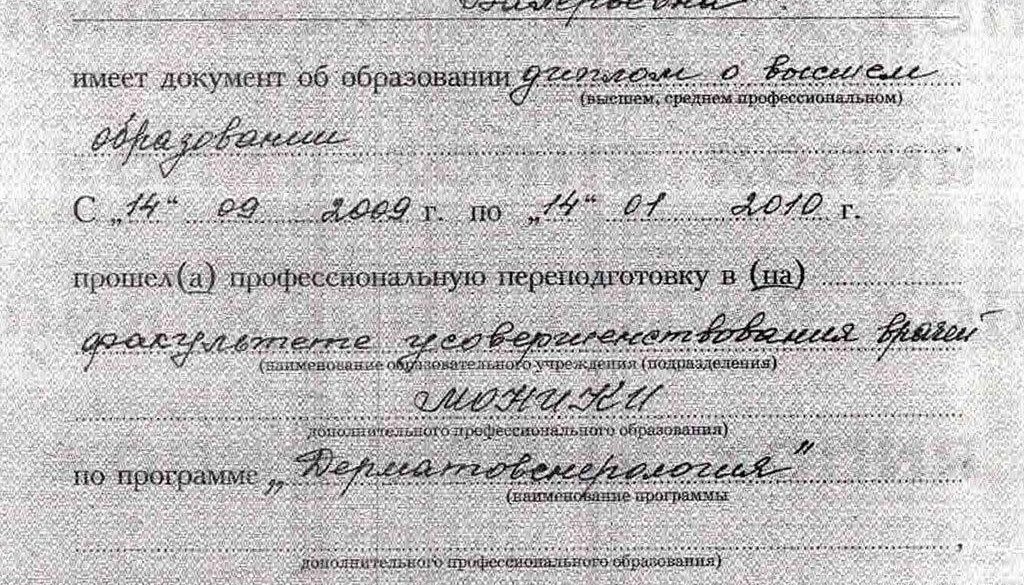 имеет документ об образовании диплом о высшем
(высшем, среднем профессиональном)
образовании
С „14“ 09 2009 г. по „14“ 01 2010 г.
прошел(а) профессиональную переподготовку в (на)
факультете усовершенствования врачей
(наименование образовательного учреждения (подразделения)
МОНИКИ
дополнительного профессионального образования)
по программе „Дерматовенерология”
(наименование программы
,
дополнительного профессионального образования)